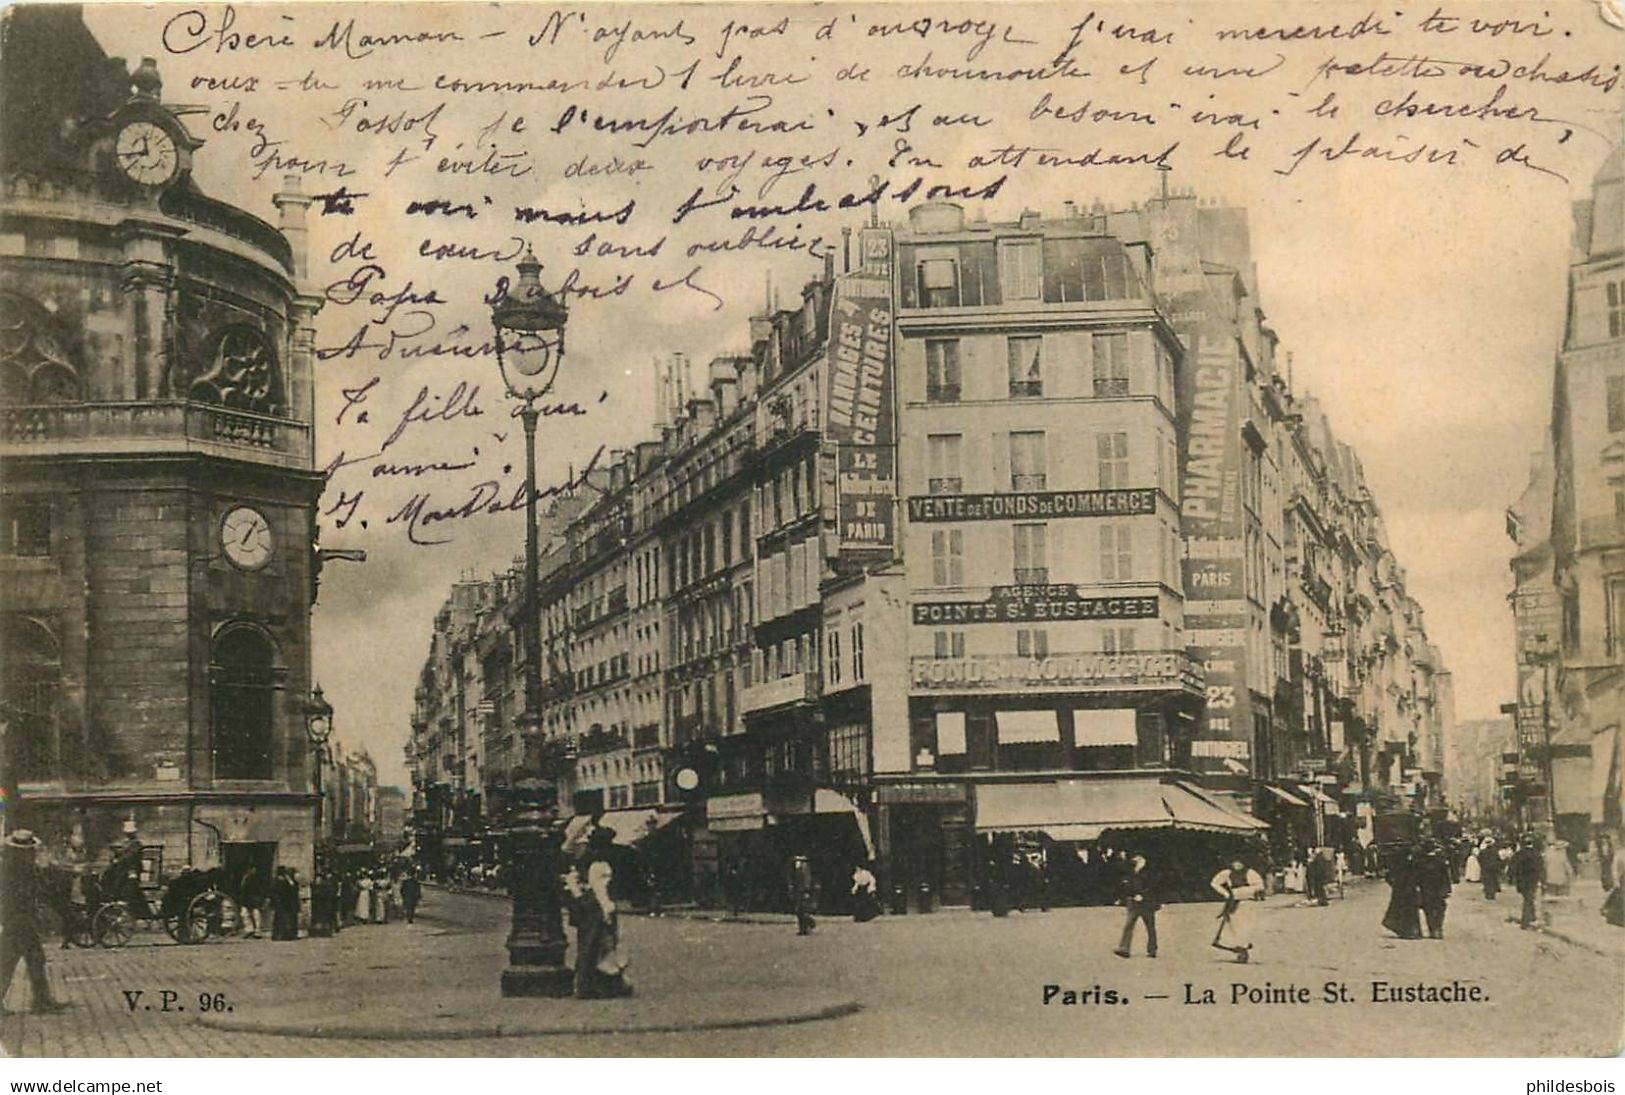 Cherè Maman – N'ayant pas d'ouvroge j'irai mercredi te voir.
veux-tu me commander 1 livre de choucroute et une palette ou chasis
chez Possot, je l'emporterai, et au besoin irai le chercher,
pour t'éviter deux voyages. En attendant le plaisir de
te voir nous t'embrassons
de cœur sans oublier
Papa Dubois et
Ta fille qui
t'aime.
23
RUE
BANDAGES &
CEINTURES
LE
DE
PARIS
PHARMACIE
PARIS
23
RUE
VENTE DE FONDS DE COMMERCE
AGENCE
POINTE St. EUSTACHE
FONDS DE COMMERCE
AGENCE
V. P. 96.
Paris. — La Pointe St. Eustache.
www.delcampe.net
phildesbois